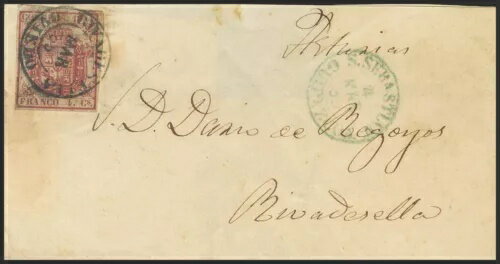 Asturias
FRANCO 4. Cs.
S. SEBASTIAN
MAR
S. D. Dario de Regoyos
Rivadesella